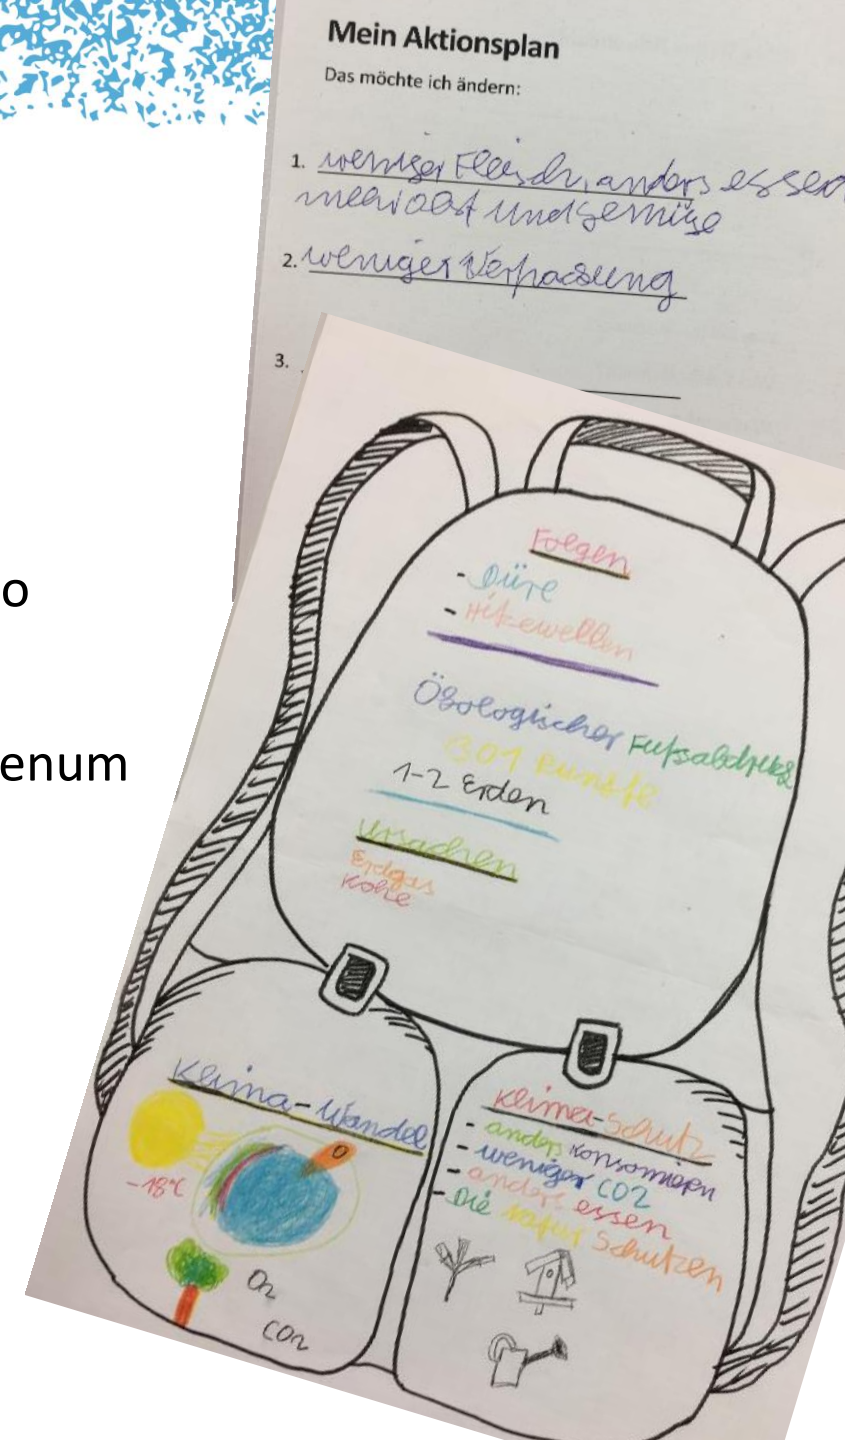 Mein Aktionsplan
Das möchte ich ändern:
1. weniger Fleisch, anders essen
mehr obst und gemüse
2. weniger Verpackung
3.
o
enum
Folgen
- Düre
- Hitzewellen
Ökologischer Fußabdruck
301 Punkte
1-2 Erden
Ursachen
Erdgas
Kohle
Klima-Wandel
-18°C
O2
CO2
Klima-Schutz
- anders konsomieren
- weniger CO2
- anders essen
- Die natur Schutzen